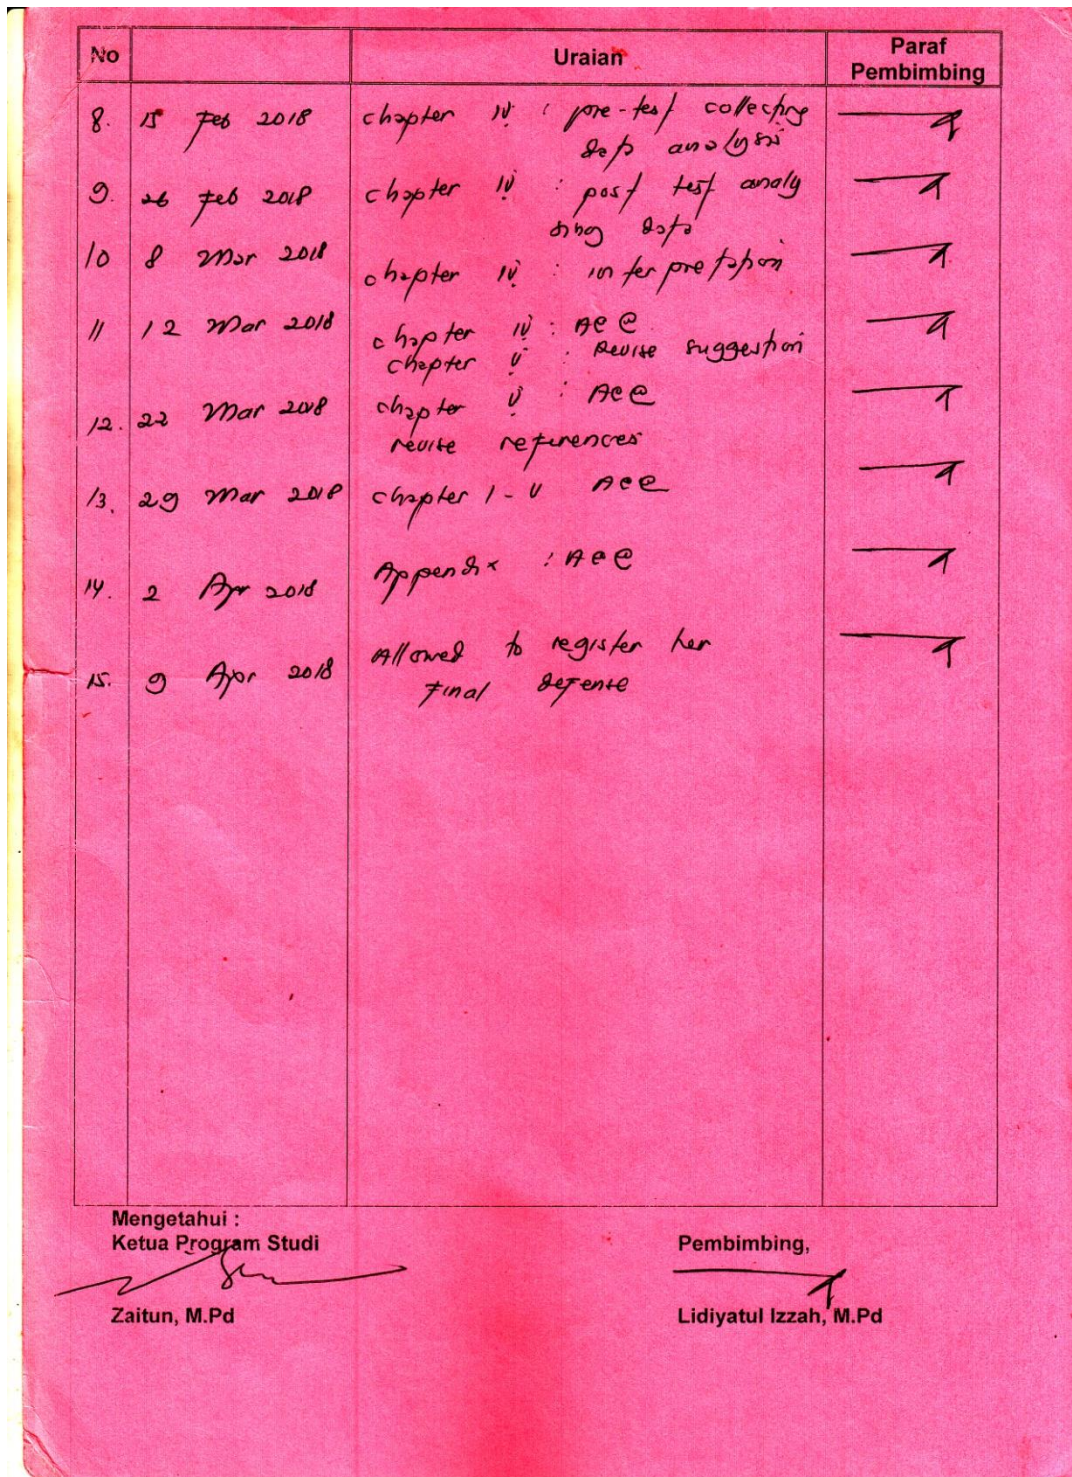 No Uraian Paraf Pembimbing
8. 15 Feb 2018 chapter IV : pre-test collecting
data analysis
9. 26 Feb 2018 chapter IV : post test analy
sing data
10 8 Mar 2018 chapter IV : interpretation
11 12 Mar 2018 chapter IV : ACC
chapter V : Revise suggestion
12. 22 Mar 2018 chapter V : ACC
revise references
13. 29 Mar 2018 chapter I - V ACC
14. 2 Apr 2018 Appendix : ACC
15. 9 Apr 2018 Allowed to register her
final defense
Mengetahui :
Ketua Program Studi Pembimbing,
Zaitun, M.Pd Lidiyatul Izzah, M.Pd